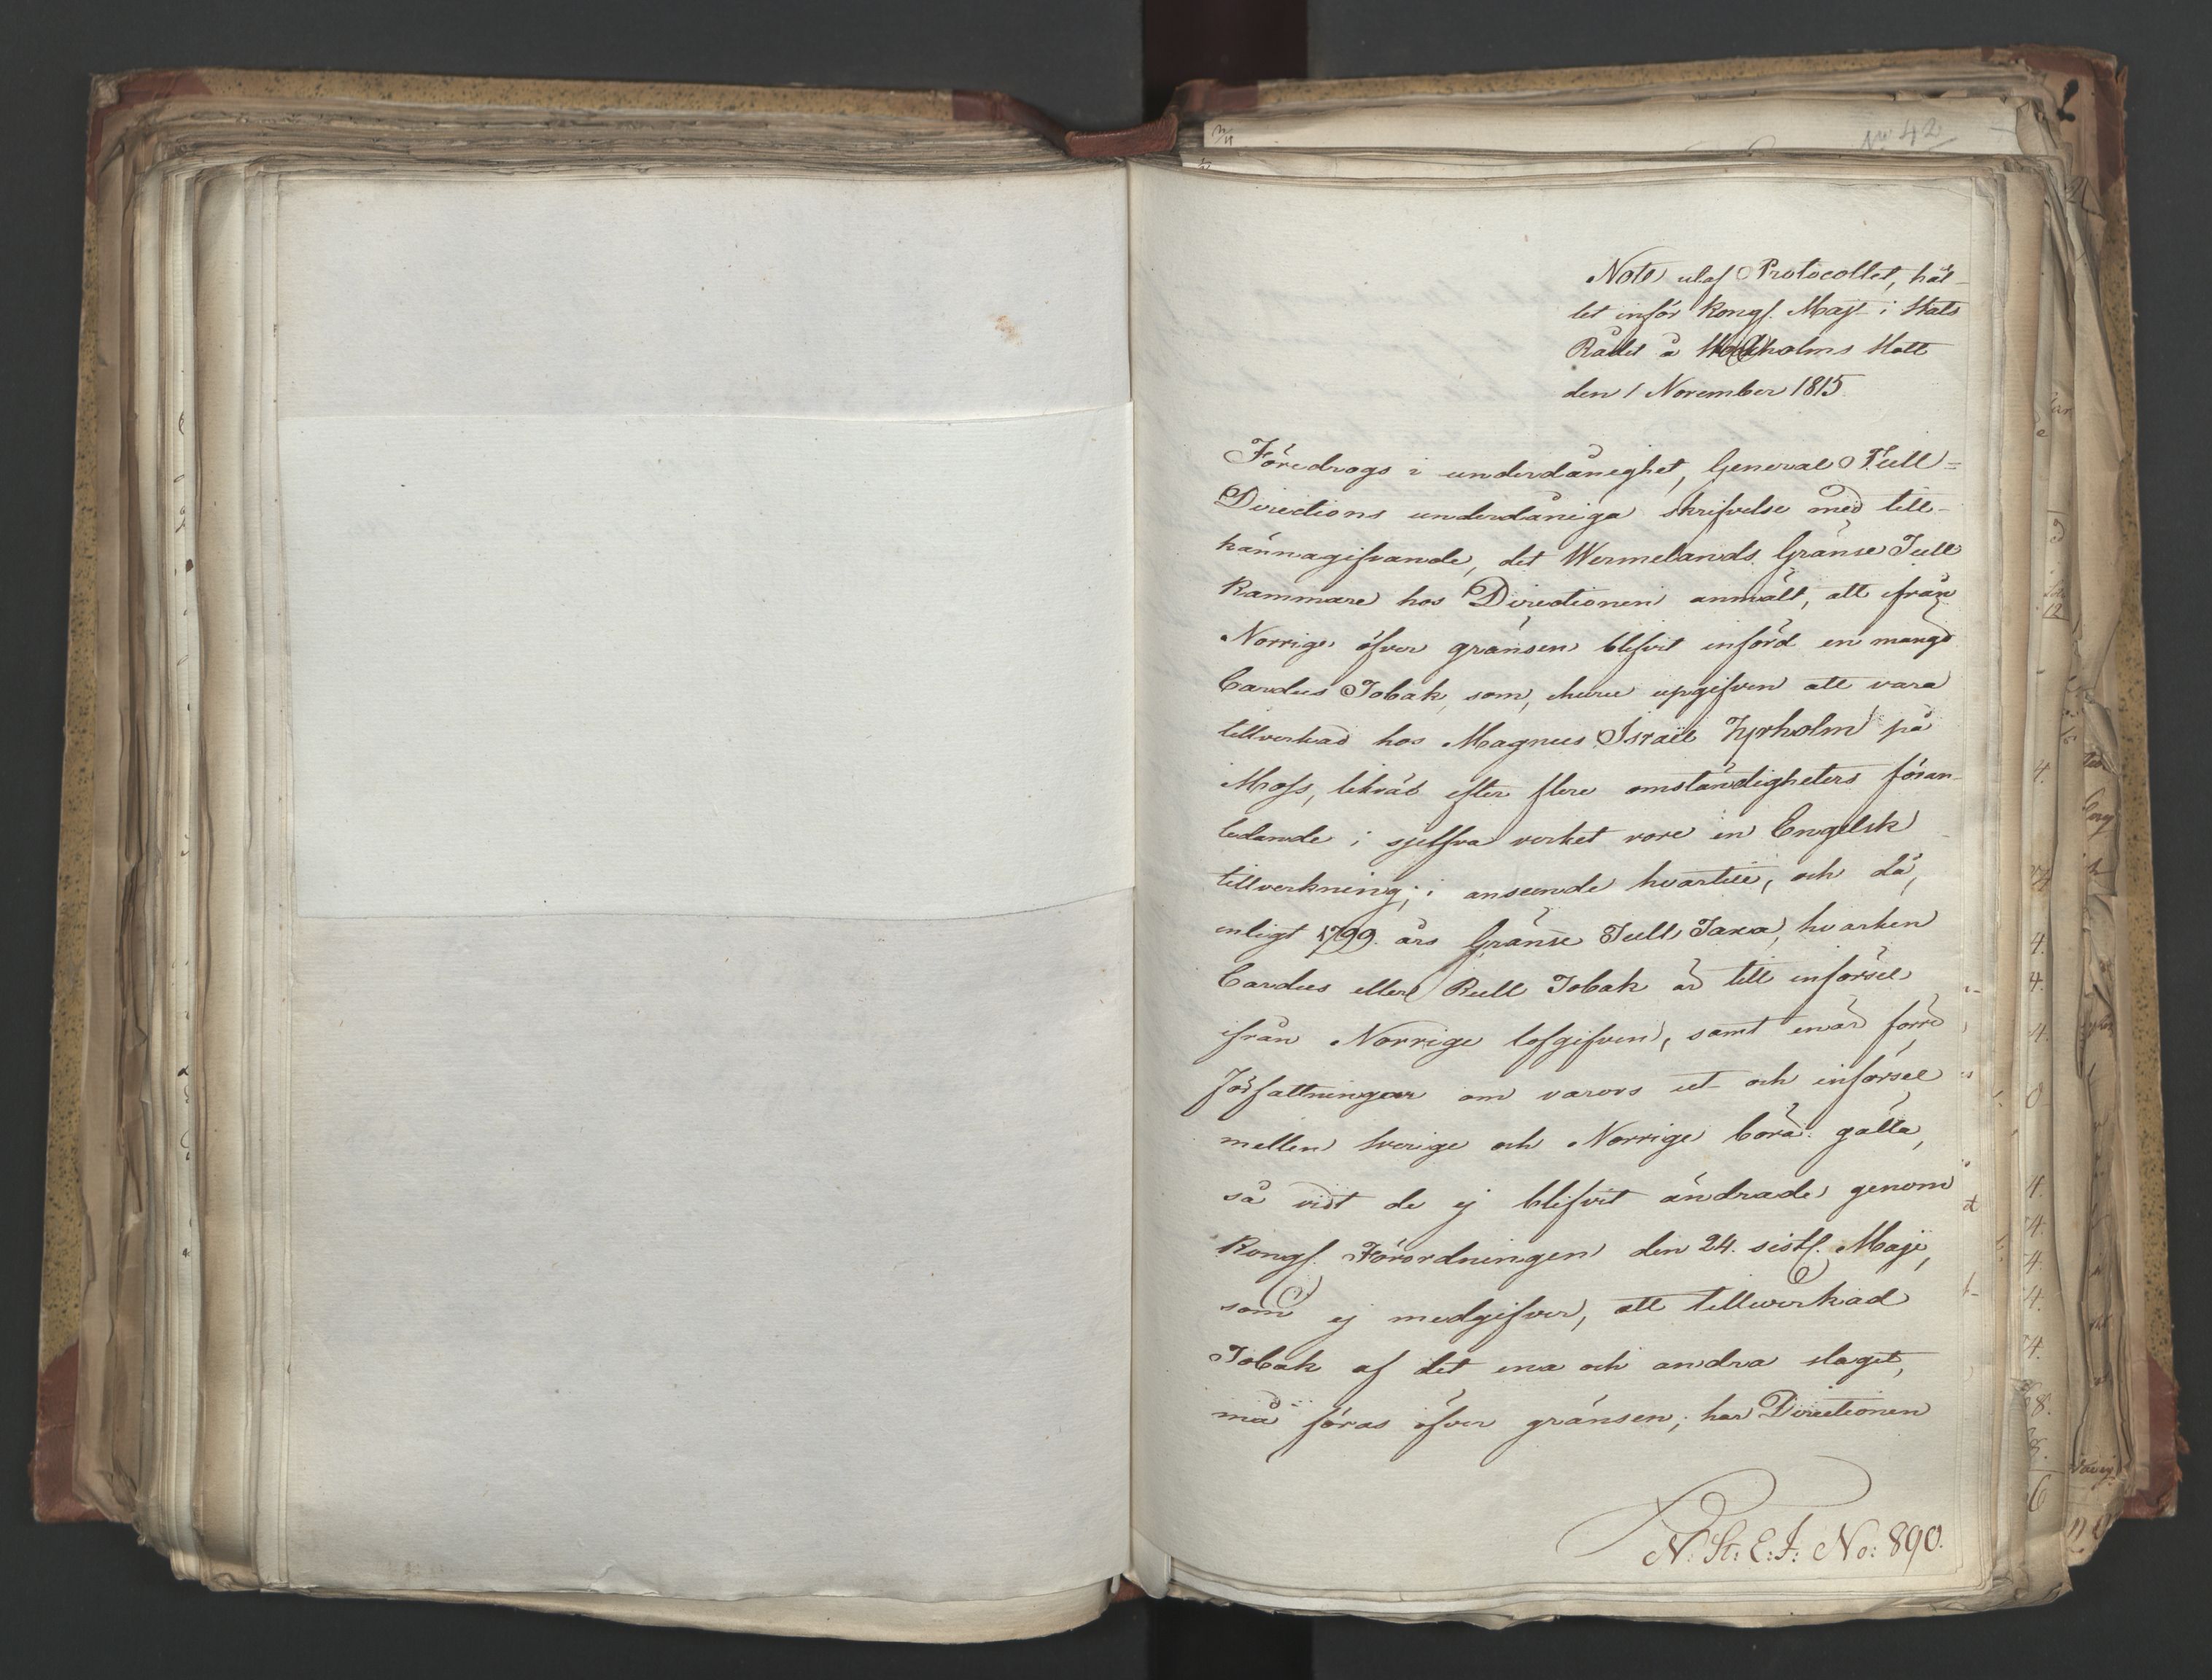 No 42
Note utaf Protocollet, hål-
let inför Kongl. Maj:t i Stats
Rådet å Stockholms Slott
den 1 November 1815.
Föredrogs i underdånighet, General Tull=
Directions underdåniga skrifvelse med till-
kännagifvande, det Wermelands Gränse Tull
Kammare hos Directionen anmält, att ifrån
Norrige öfver gränsen blifvit införd en mängd
Cardus Tobak, som, ehuru upgifven att vara
tillverkad hos Magnus Israel Zyrholm på
Moss, likväl efter flere omständigheters föran-
ledande i sjelfva verket vore en Engelsk
tillverkning; i anseende hvartill, och då,
enligt 1799. års Gränse Tull Taxa, hvarken
Cardus eller Rull Tobak är till införsel
ifrån Norrige lofgifven, samt enär förre
författningar om varors ut- och införsel
mellen Sverige och Norrige böra gälla,
så vidt de ej blifvit ändrade genom
Kongl. Förordningen den 24. sistl. Maji,
som ej medgifver, att tillwerkad
Tobak af det ena och andra slaget,
må föras öfver gränsen; har Directionen
N. St: E: I: No: 890.